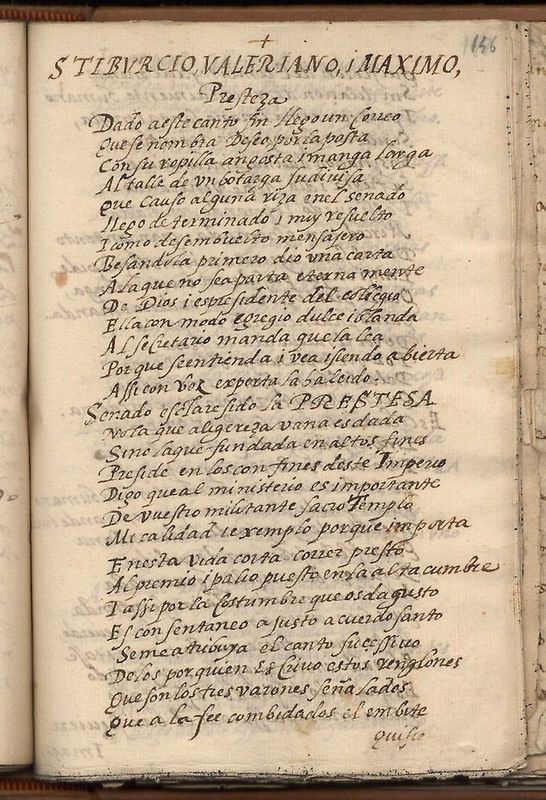 +
156
S TIBVRCIO, VALERIANO, i MAXIMO,
Presteza
Dado a este canto fin llego un Correo
Que se nombra Deseo, por la posta
Con su ropilla angosta i manga larga
Al talle de vn botarga
Que causo alguna riza en el senado
llego determinado i muy resuelto
I como desembuelto mensajero
Besandola primero dio vna carta
A la que no se aparta eterna mente
De Dios i es presidente del colegio
Ella con modo egregio dulce i blanda
Al secretario manda que la lea
Por que se entienda i vea i siendo abierta
Assi con voz experta la ha leido.
Senado esclaresido la PRESTESA
No la que a ligereza vana es dada
Sino la que fundada en altos fines
Preside en los confines deste Imperio
Digo que al ministerio es importante
De vuestro militante sacro Templo
Mi calidad i exemplo porque importa
En esta vida corta correr presto
Al premio i palio puesto en la alta cumbre
I assi por la costumbre que os da gusto
Es consentaneo a justo acuerdo santo
Se me atribuia el canto sucessivo
De los por quien escrivo estos renglones
Que son los tres varones señalados
Que a la fee combidados el embite
Quisie